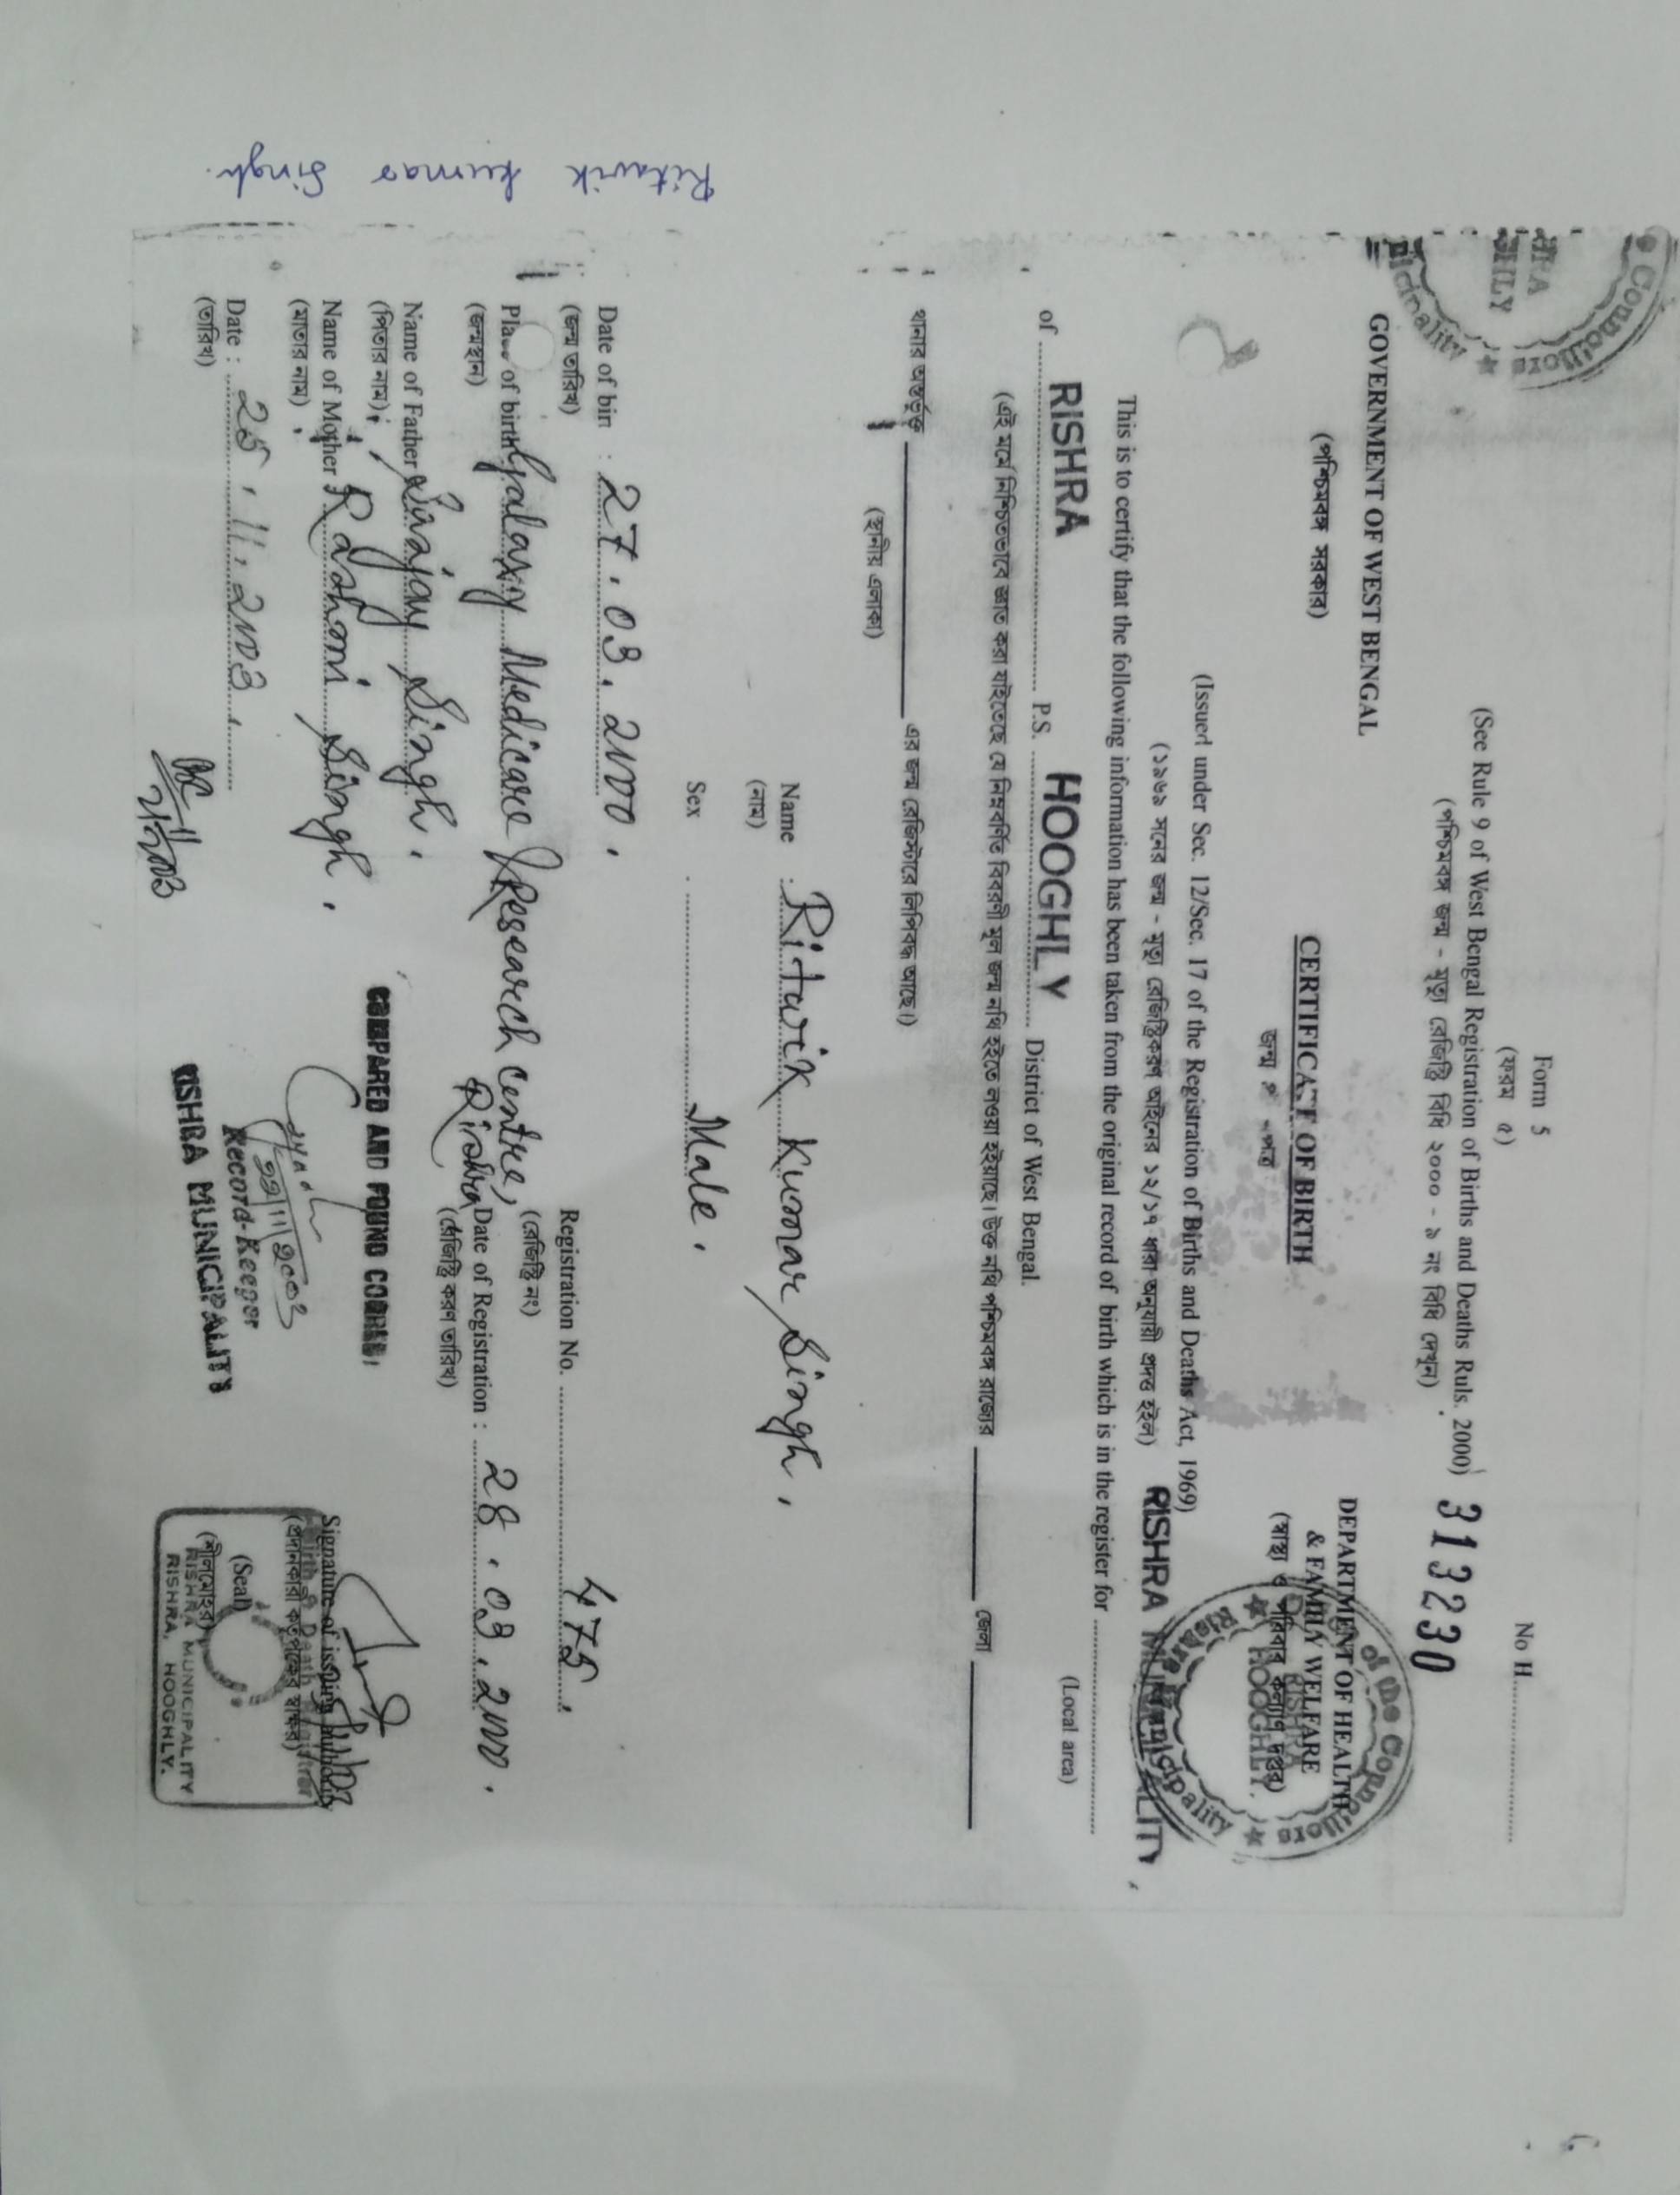 Form 5
(ফরম ৫)
No H
(See Rule 9 of West Bengal Registration of Births and Deaths Ruls. 2000)
313230
(পশ্চিমবঙ্গ জন্ম - মৃত্যু রেজিষ্ট্রি বিধি ২০০০ - ৯ নং বিধি দেখুন)
GOVERNMENT OF WEST BENGAL
(পশ্চিমবঙ্গ সরকার)
DEPARTMENT OF HEALTH
& FAMILY WELFARE
(স্বাস্থ্য ও পরিবার কল্যাণ দপ্তর)
of the Councillors
RISHRA
HOOGHLY
Rishra Municipality
Councillors
CERTIFICATE OF BIRTH
জন্ম
(Issued under Sec. 12/Sec. 17 of the Registration of Births and Deaths Act, 1969)
(১৯৬৯ সনের জন্ম - মৃত্যু রেজিষ্ট্রিকরণ আইনের ১২/১৭ ধারা অনুযায়ী প্রদত্ত হইল)
RISHRA MUNICIPALITY
This is to certify that the following information has been taken from the original record of birth which is in the register for
(Local area)
of RISHRA P.S. HOOGHLY District of West Bengal.
(এই মর্মে নিশ্চিতভাবে জ্ঞাত করা যাইতেছে যে নিম্নবর্ণিত বিবরণী মূল জন্ম নথি হইতে লওয়া হইয়াছে। উক্ত নথি পশ্চিমবঙ্গ রাজ্যের জেলা
থানার অন্তর্ভুক্ত এর জন্ম রেজিস্টারে লিপিবদ্ধ আছে।)
(স্থানীয় এলাকা)
Name : Ritwik Kumar Singh.
(নাম)
Sex Male.
Date of bir : 27.03.2000.
(জন্ম তারিখ)
Registration No. 475.
(রেজিষ্ট্রি নং)
Place of birth Galaxy Medicare & Research Centre, Rishra
(জন্মস্থান)
Date of Registration : 28.03.2000.
(রেজিষ্ট্রি করণ তারিখ)
Name of Father Singh.
(পিতার নাম)
Name of Mother Rashmi Singh.
(মাতার নাম)
Date : 25.11.2003.
(তারিখ)
COMPARED AND FOUND CORRECT
22/11/2003
Record-Keeper
RISHRA MUNICIPALITY
Signature of issuing authority
(প্রদানকারী কর্তৃপক্ষের স্বাক্ষর)
(Seal)
(শীলমোহর)
RISHRA MUNICIPALITY
RISHRA, HOOGHLY.
Ritwik Kumar Singh.